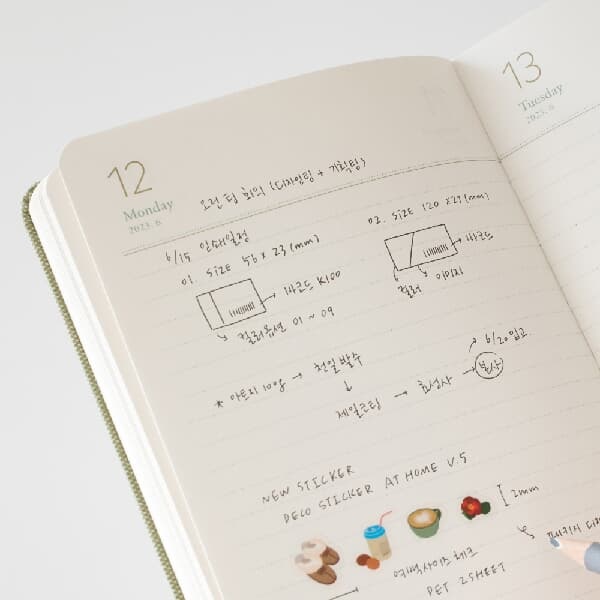 12
Monday
2023. 6
오전 팀 회의 (디자인팀 + 기획팀)
6/15 인쇄일정
01. SIZE 55 x 23 (mm)
바코드 K100
컬러옵션 01 ~ 09
02. SIZE 120 x 27 (mm)
바코드
컬러
이미지
★ 아트지 100g → 천일발수
↓
제일코팅 → 효성사 →
6/20 입고
본사
NEW STICKER
DECO STICKER AT HOME V.5
2mm
여백사이즈체크
PET 2SHEET
13
Tuesday
2023. 6
패키지 디자